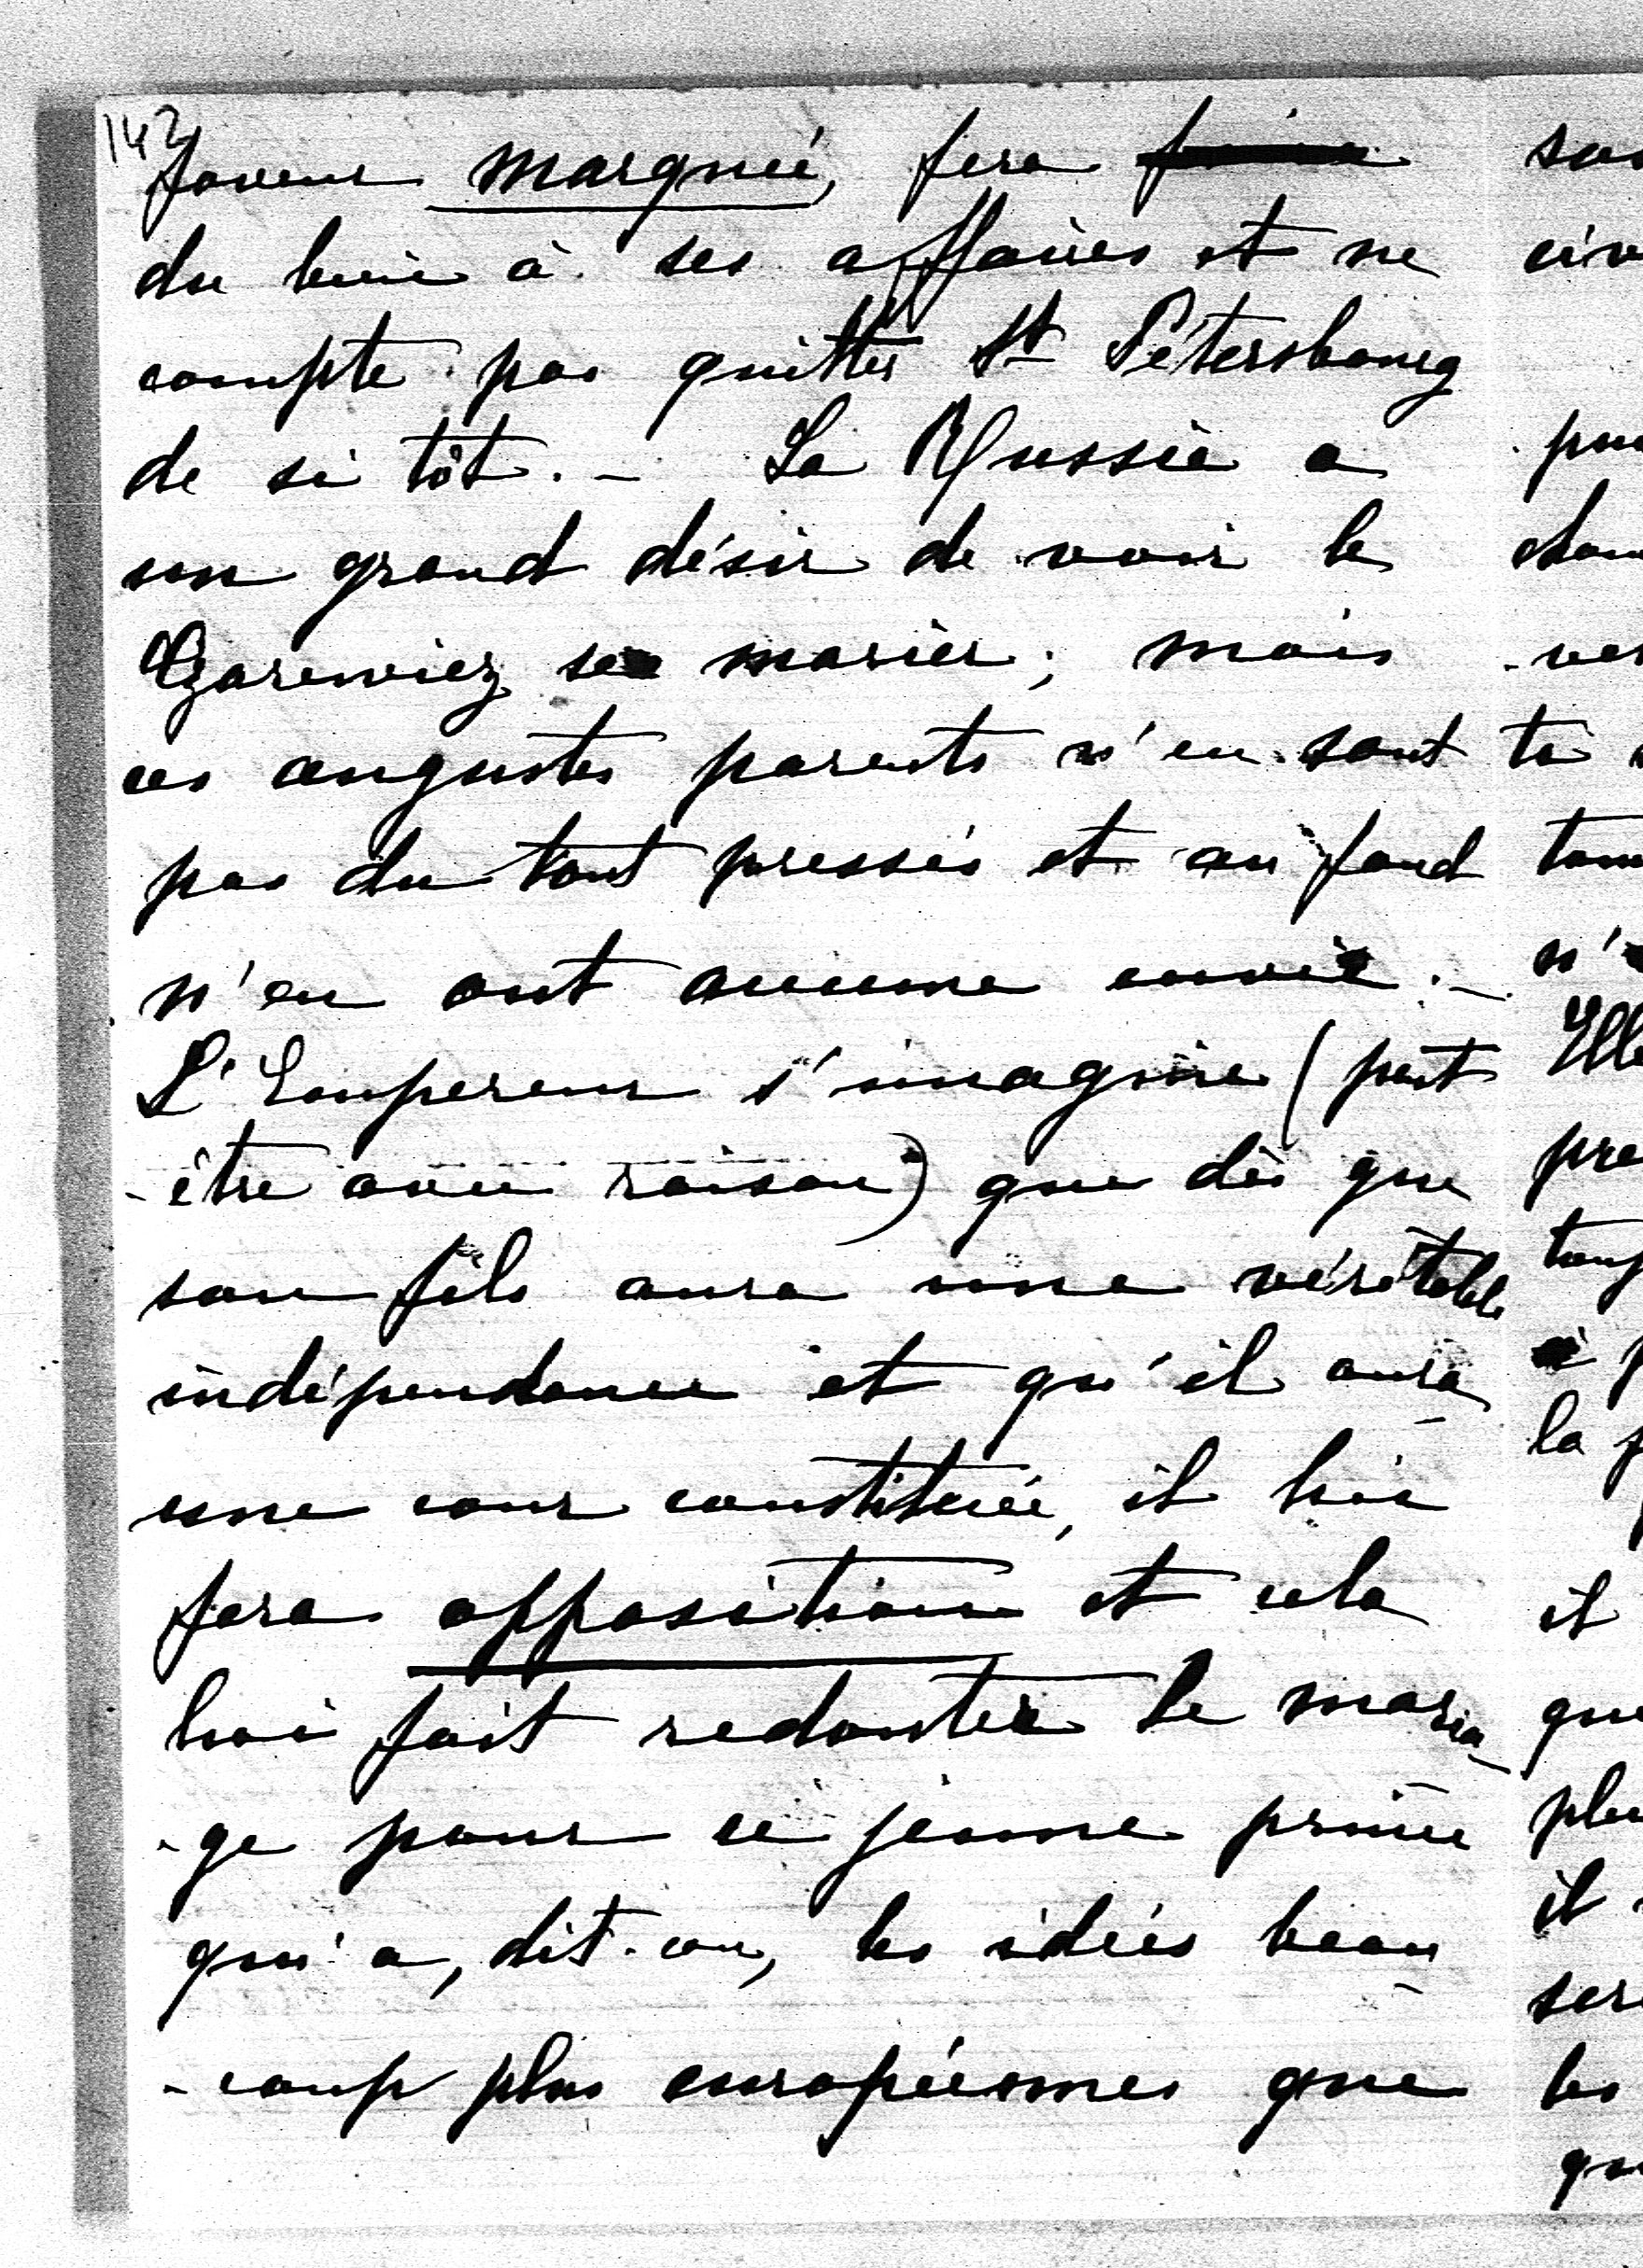 142
faveur marquée, fera
du bien à ses affaires et ne
compte pas quitter St Pétersbourg
de si tôt. - La Russie a
un grand désir de voir le
Czarewicz se marier; mais
ces augustes parents n'en sont
pas du tout pressés et au fond
n'en ont aucune envie. -
L'Empereur s'imagine (peut
-être avec raison) que dès que
son fils aura une véritable
indépendance et qu'il aura
une cour constituée, il lui
fera opposition et cela
lui fait redouter le maria-
-ge pour ce jeune prince
qui a, dit-on, les idées beau-
-coup plus européennes que